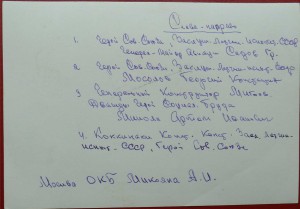 Слева-направо
1. Герой Сов. Союза, Заслуж. Летчик-испыт. СССР
Генерал-майор авиации Седов Гр.
2. Герой Сов. Союза, Заслуж. Летчик-испыт.
Мосолов Георгий Константин
3. Генеральный Конструктор МиГов
Дважды Герой Социал. Труда
Микоян Артем Иванович
4. Коккинаки Конст. Конст. Засл. Летчик-
испыт. СССР, Герой Сов. Союза
Москва ОКБ Микояна А.И.